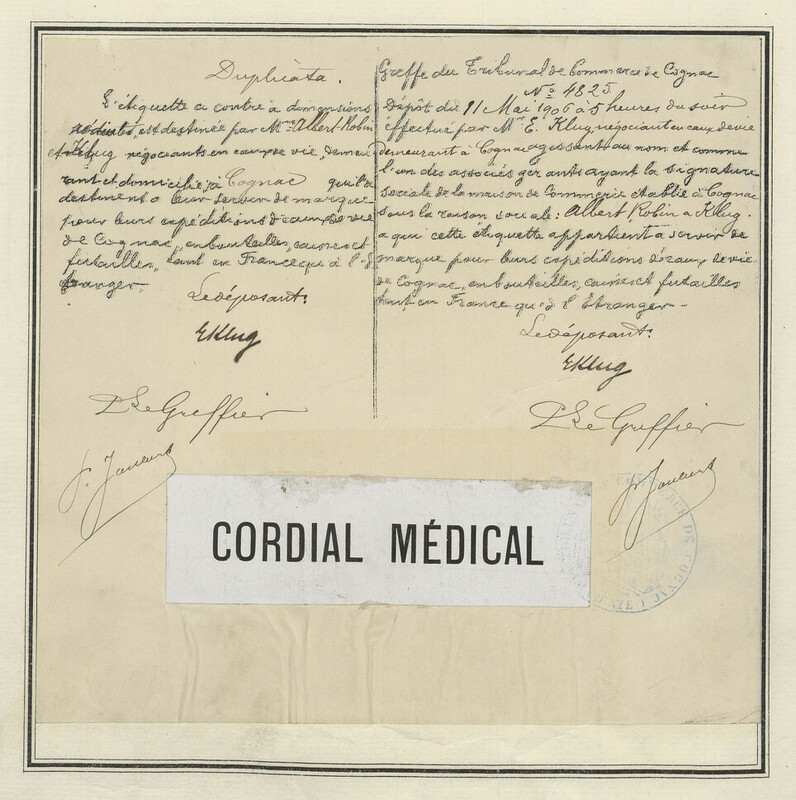 Duplicata.
L'étiquette ci contre à dimensions
réduites, est destinée par Mrs Albert Robin
et Klug négociants en eaux de vie, demeu
rant et domiciliés à Cognac qu'ils
destinent à leur servir de marque
pour leurs expéditions d'eaux de vie
de Cognac, en bouteilles, caisses et
futailles, tant en France qu'à l'É
tranger.
Le déposant:
EKlug
Pr Le Greffier
Greffe du Tribunal de Commerce de Cognac
No 4825
Dépôt du 11 Mai 1906 à 5 heures du soir
effectué par Mr E. Klug, négociant en eaux de vie
demeurant à Cognac agissant au nom et comme
l'un des associés gérants ayant la signature
sociale de la maison de Commerce établie à Cognac
sous la raison sociale: Albert Robin & Klug.
à qui cette étiquette appartient à servir de
marque pour leurs expéditions d'eaux de vie
de Cognac, en bouteilles, caisses et futailles
tant en France qu'à l'Etranger
Le déposant:
EKlug
Pr Le Greffier
CORDIAL MÉDICAL